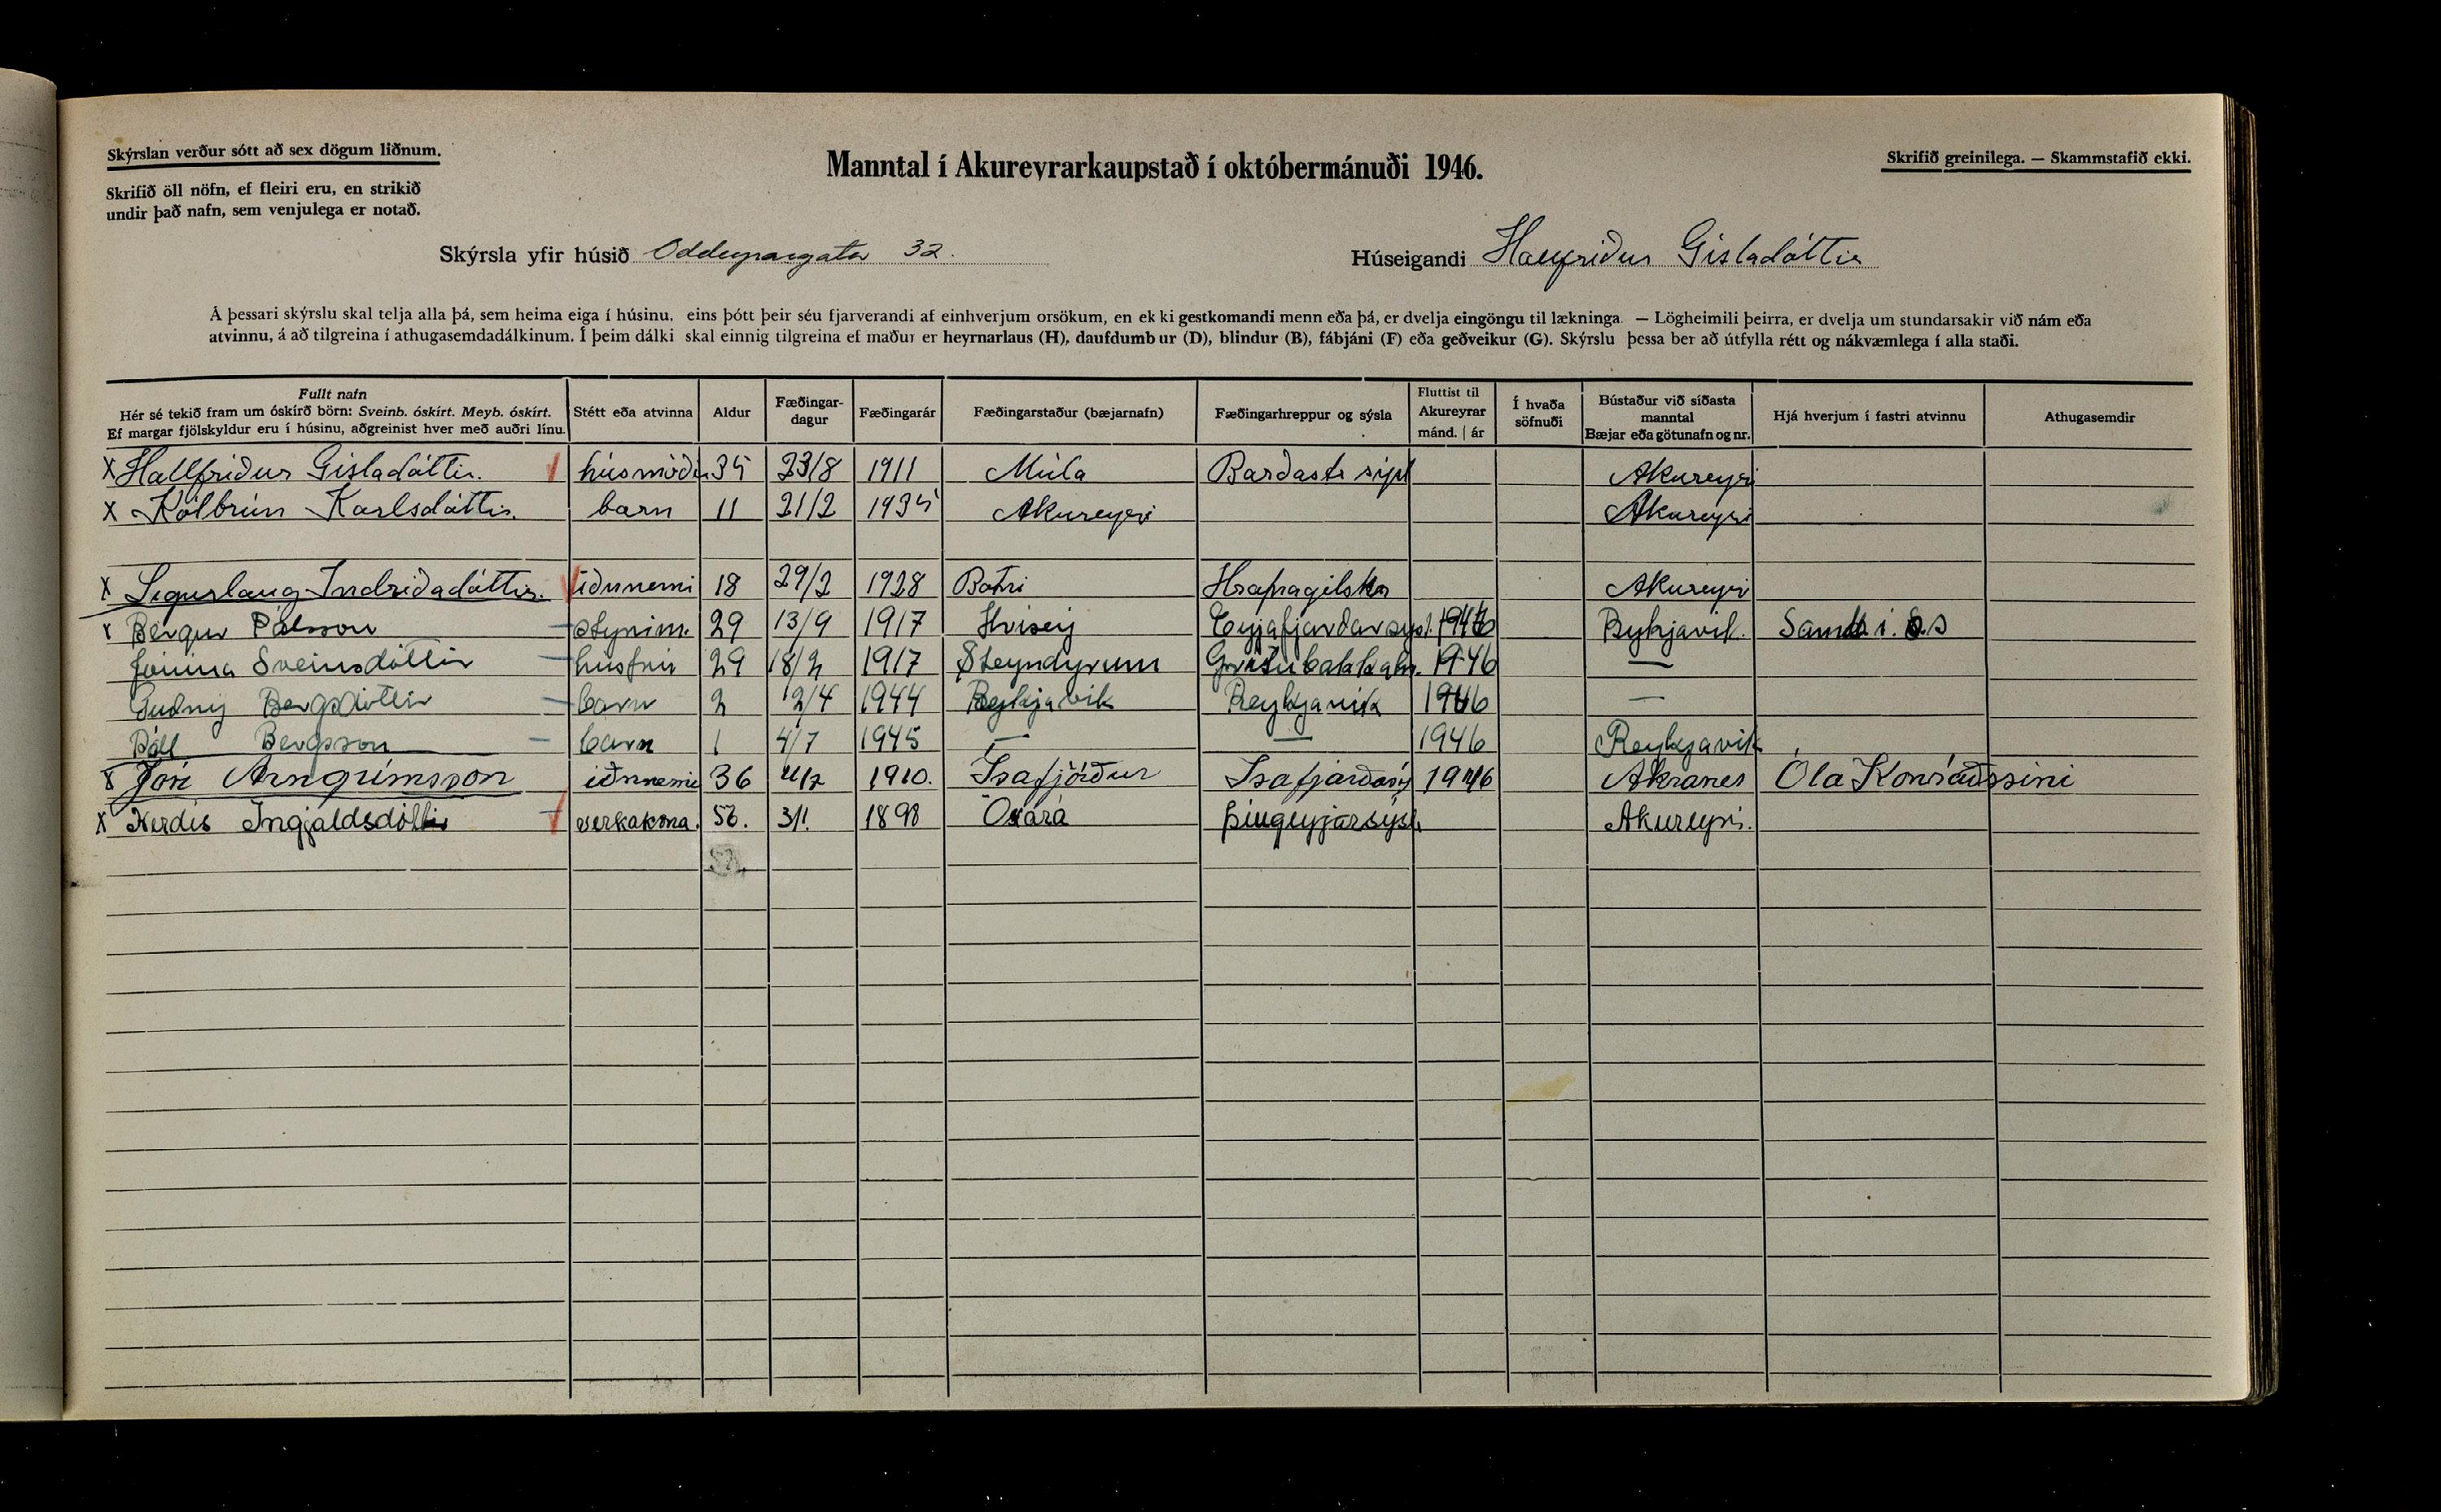 Skýrslan verður sótt að sex dögum liðnum.
Skrifið öll nöfn, ef fleiri eru, en strikið
undir það nafn, sem venjulega er notað.
Manntal í Akureyrarkaupstað í októbermánuði 1946.
Skrifið greinilega. — Skammstafið ekki.
Skýrsla yfir húsið Oddeyrargata 32.
Húseigandi Hallfríður Gísladóttir
Á þessari skýrslu skal telja alla þá, sem heima eiga í húsinu, eins þótt þeir séu fjarverandi af einhverjum orsökum, en ekki gestkomandi menn eða þá, er dvelja eingöngu til lækninga. — Lögheimili þeirra, er dvelja um stundarsakir við nám eða
atvinnu, á að tilgreina í athugasemdadálkinum. Í þeim dálki skal einnig tilgreina ef maður er heyrnarlaus (H), daufdumbur (D), blindur (B), fábjáni (F) eða geðveikur (G). Skýrslu þessa ber að útfylla rétt og nákvæmlega í alla staði.
Fullt nafn
Hér sé tekið fram um óskírð börn: Sveinb. óskírt. Meyb. óskírt.
Ef margar fjölskyldur eru í húsinu, aðgreinist hver með auðri línu.
Stétt eða atvinna
Aldur
Fæðingar-
dagur
Fæðingarár
Fæðingarstaður (bæjarnafn)
Fæðingarhreppur og sýsla
Fluttist til
Akureyrar
mánd. | ár
Í hvaða
söfnuði
Bústaður við síðasta
manntal
Bæjar eða götunafn og nr.
Hjá hverjum í fastri atvinnu
Athugasemdir
X Hallfríður Gísladóttir. húsmóðir 35 23/8 1911 Múla Barðastr sýsl Akureyri
X Kolbrún Karlsdóttir. barn 11 21/2 1935 Akureyri Akureyri
X Sigurlaug Indriðadóttir. iðnnemi 18 29/2 1928 Botni Hrafnagilshr Akureyri
x Bergur Pálsson stýrim. 29 13/9 1917 Hrísey Eyjafjarðarsýsl. 1946 Rykjavík. Samb. í. S.
Jónína Sveinsdóttir húsfrú 29 18/2 1917 Steyndyrum Grítubakkahr. 1946 —
Guðný Bergsdóttir barn 2 12/4 1944 Reykjavík Reykjavík 1946 —
Páll Bergsson barn 1 4/7 1945 — — 1946 Reykjavík
x Jón Arngrímsson iðnnemi 36 1910. Ísafjörður Ísafjarðars 1946 Akranes Óla Konráðssini
X Herdís Ingjaldsdóttir verkakona. 56. 3/1. 1890 Öxará Þingeyjarsýsl. Akureyri.